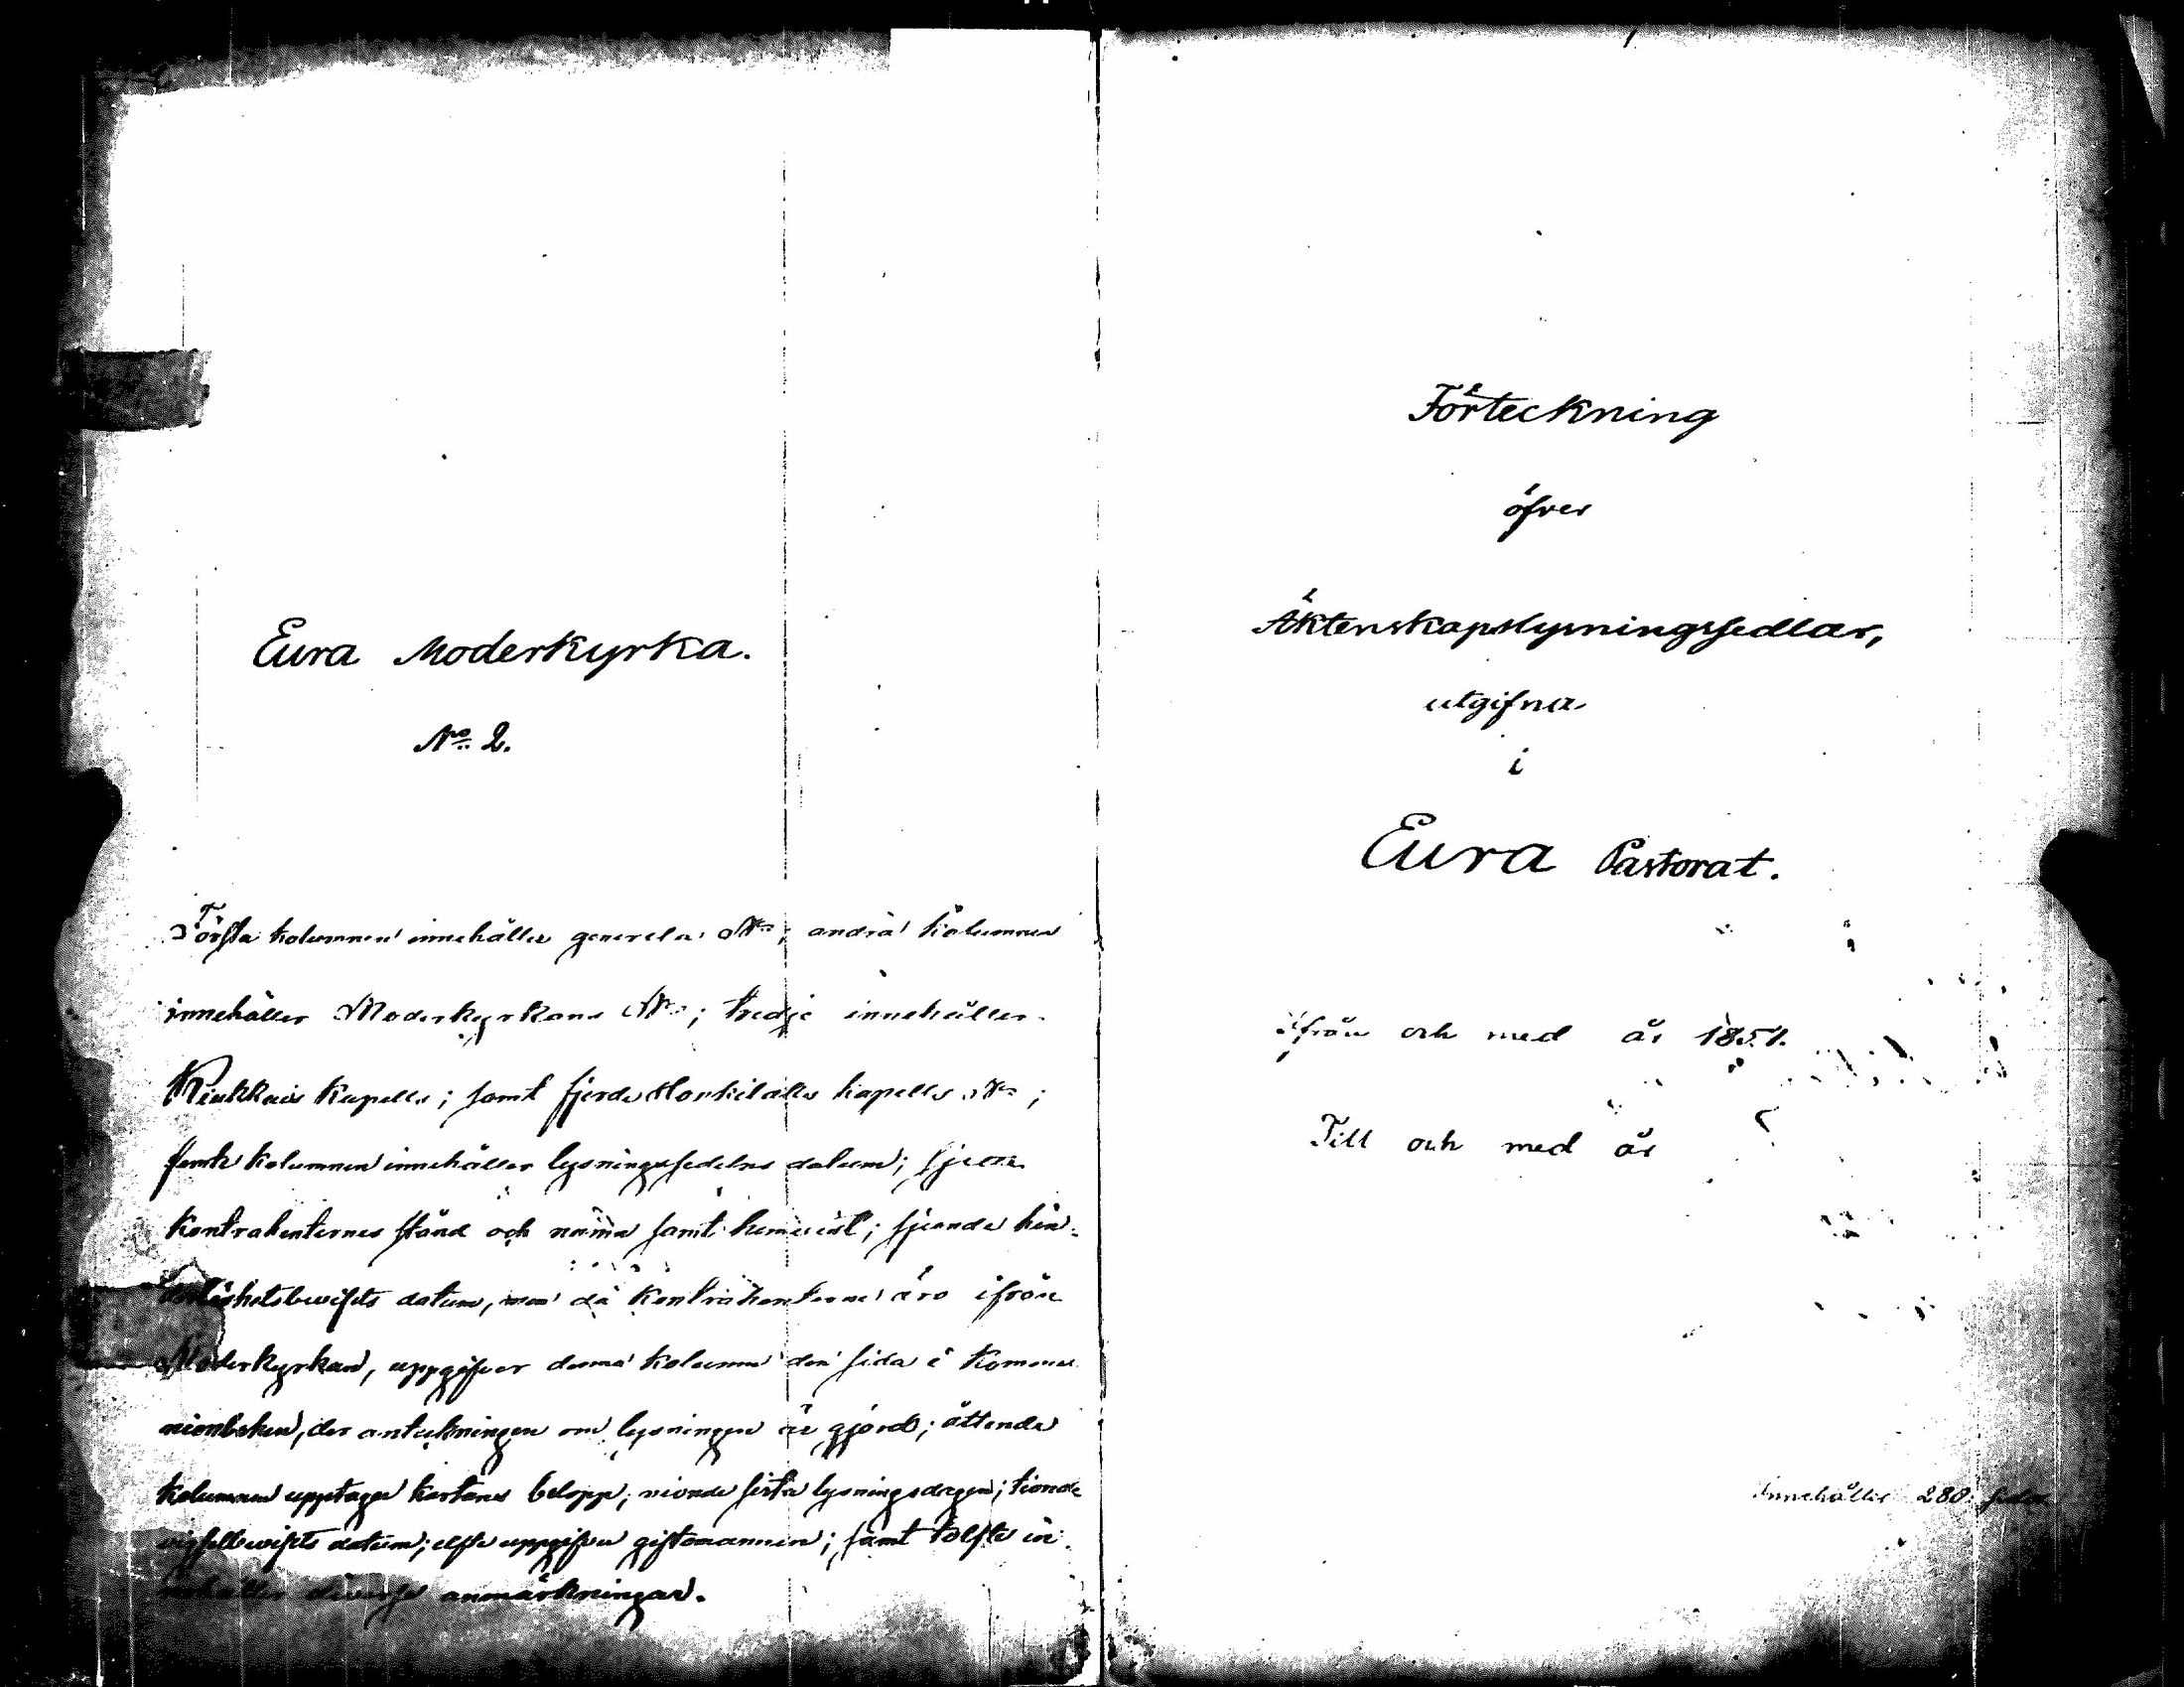 Eura Moderkyrka.
No. 2.
Första kolumnen innehåller generela No; andra kolumnen
innehåller Moderkyrkans No; tredje innehåller
Kiukkais Kapells; samt fjerde Honkilaks kapells No;
femte kolumnen innehåller lysningssedelns datum; sjette
Kontrahenternes stånd och namn samt hemvist; sjunde hin-
derlöshetsbevisets datum, men då Kontrahenterne äro ifrån
Moderkyrkan, uppgifver denna kolumn den sida i Kommu-
nionboken, der anteckningen om lysningen är gjord; åttende
kolumnen upptager kartans belopp; nionde sista lysningsdagen; tionde
vigselbevisets datum; elfte uppgifver giftomannen; samt tolfte in-
nehåller diverse anmärkningar.
Förteckning
öfver
Äktenskapslysningssedlar,
utgifna
i
Eura Pastorat.
ifrån och med år 1851.
Till och med år
Innehåller 280 sidor